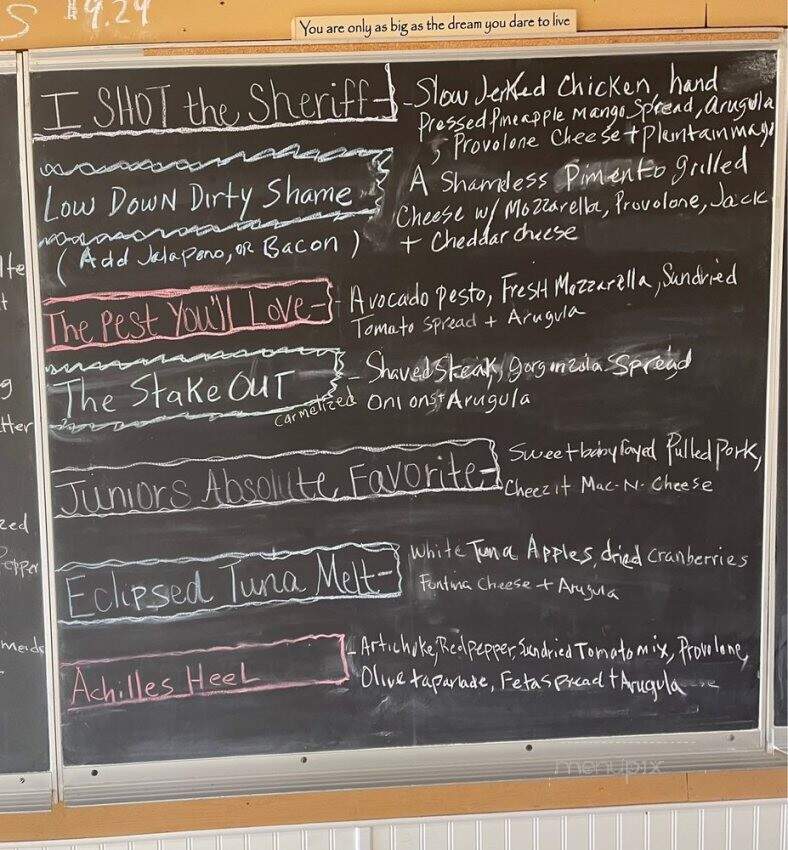 S $9.29
You are only as big as the dream you dare to live
I SHOT the Sheriff - Slow Jerked Chicken, hand
Pressed Pineapple Mango Spread, Arugula
, Provolone Cheese + Plantain mayo
Low Down Dirty Shame A Shameless Pimento grilled
Cheese w/ Mozzarella, Provolone, Jack
+ Cheddar cheese
(Add Jalapono, or Bacon)
The Pest You'll Love - Avocado pesto, Fresh Mozzarella, Sundried
Tomato spread + Arugula
The Stake OUT - Shaved steak, gorgonzola Spread
carmelized Onions + Arugula
Juniors Absolute Favorite - Sweet baby fayed Pulled Pork,
Cheez it Mac-N-Cheese
Eclipsed Tuna Melt - White Tuna Apples, dried cranberries
Funtina Cheese + Arugula
Achilles Heel - Artichoke, Red pepper, Sundried Tomato mix, Provolone,
Olive taparlade, Feta spread + Arugula
menupix